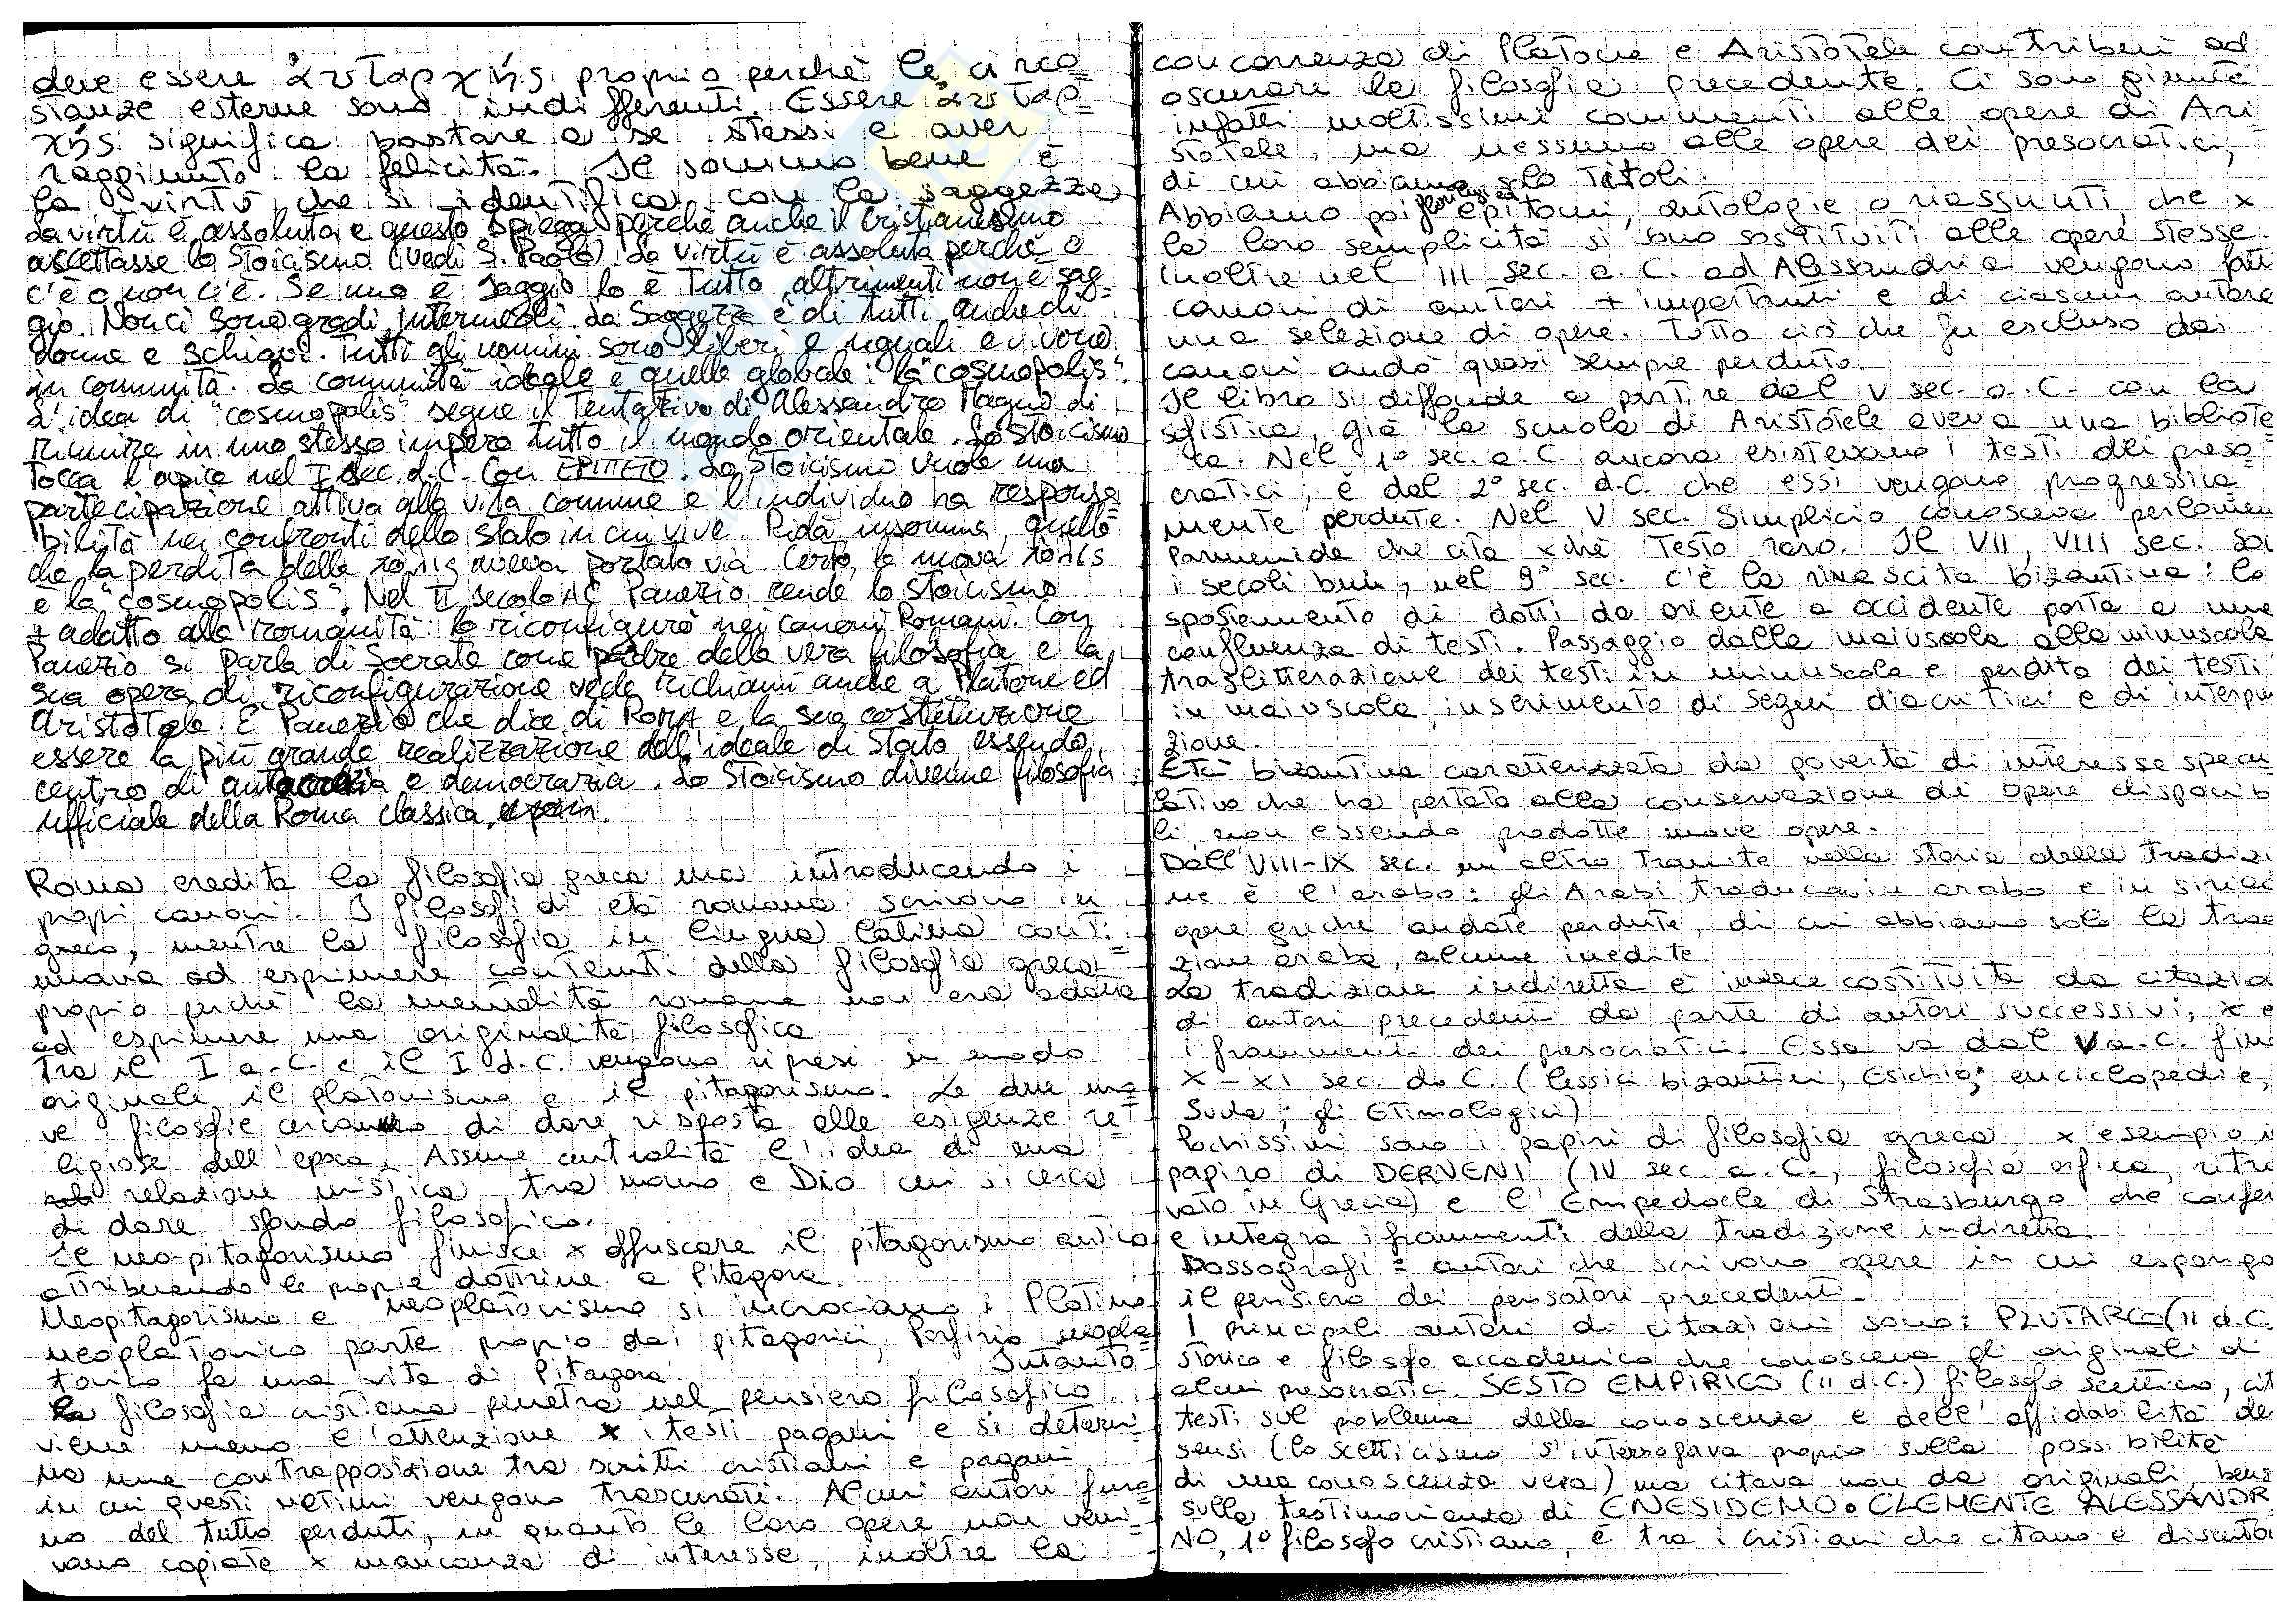 deve essere ἀυταρχής proprio perchè le circo=
stanze esterne sono indifferenti. Essere ἀυταρ=
χής significa bastare a se stessi e aver
raggiunto la felicità. Il sommo bene è
la virtù che si identifica con la saggezza
La virtù è assoluta e questo spiega perchè anche il Cristianesimo
accettasse lo Stoicismo (vedi S. Paolo). La virtù è assoluta perchè o
c'è o non c'è. Se uno è saggio lo è tutto altrimenti non è sag=
gio. Non ci sono gradi intermedi. La Saggezza è di tutti anche di
donne e schiavi. Tutti gli uomini sono liberi e uguali e vivono
in comunità. La comunità ideale è quella globale: la "cosmopolis".
L'idea di "cosmopolis" segue il tentativo di Alessandro Magno di
riunire in uno stesso impero tutto il mondo orientale. Lo Stoicismo
tocca l'apice nel I sec. d.C. con EPITTETO. Lo Stoicismo vuole una
partecipazione attiva alla vita comune e l'individuo ha responsa
bilità nei confronti dello stato in cui vive. Ridà insomma, quello
che la perdita della πόλις aveva portato via. Certo, la nuova πόλις
è la "cosmopolis". Nel II secolo AC Panezio rende lo stoicismo
+ adatto alla romanità: lo riconfigurò nei canoni Romani. Con
Panezio si parla di Socrate come padre della vera filosofia e la
sua opera di riconfigurazione vede richiami anche a Platone ed
Aristotele. È Panezio che dice di Roma e la sua costituzione
essere la più grande realizzazione dell'ideale di Stato essendo
centro di e democrazia. Lo Stoicismo divenne filosofia
ufficiale della Roma classica.
Roma eredita la filosofia greca ma introducendo i
propri canoni. I filosofi di età romana scrivono in
greco, mentre la filosofia in lingua latina conti=
nuava ad esprimere contenuti della filosofia greca
proprio perchè la mentalità romana non era adatta
ad esprimere una originalità filosofica
Tra il I a.C. e il I d.C. vengono ripresi in modo
originale il platonismo e il pitagorismo. Le due nuo
ve filosofie cercano di dare risposta alle esigenze re=
ligiose dell'epoca. Assume centralità l'idea di una
relazione mistica tra uomo e Dio cui si cerca
di dare sfondo filosofico.
Il neo-pitagorismo finisce x offuscare il pitagorismo antico
attribuendo le proprie dottrine a Pitagora.
Neopitagorismo e neoplatonismo si incrociano: Plotino
neoplatonico parte proprio dai pitagorici, Porfirio neopla=
tonico fa una vita di Pitagora. Intanto
la filosofia cristiana penetra nel pensiero filosofico
viene meno l'attenzione x i testi pagani e si determi=
na una contrapposizione tra scritti cristiani e pagani
in cui questi ultimi vengono trascurati. Alcuni autori furo
no del tutto perduti, in quanto le loro opere non veni=
vano copiate x mancanza di interesse, inoltre la
concorrenza di Platone e Aristotele contribuì ad
oscurare la filosofia precedente. Ci sono giunte
infatti moltissimi commenti alle opere di Ari=
stotele, ma nessuno alle opere dei presocratici,
di cui abbiamo solo titoli.
Abbiamo poi florilegi ed epitomi, antologie o riassunti, che x
la loro semplicità si sono sostituiti alle opere stesse.
Inoltre nel III sec. a.C. ad Alessandria vengono fatti
canoni di autori + importanti e di ciascun autore
una selezione di opere. Tutto ciò che fu escluso dai
canoni andò quasi sempre perduto.
Il libro si diffonde a partire dal V sec. a.C. con la
sofistica, già la scuola di Aristotele aveva una bibliote
ca. Nel 1° sec. a.C. ancora esistevano i testi dei preso=
cratici, è dal 2° sec. d.C. che essi vengono progressiva
mente perdute. Nel V sec. Simplicio conosceva perlomen
Parmenide che cita xchè testo raro. Il VII, VIII sec. so
i secoli bui, nel 9° sec. c'è la rinascita bizantina: lo
spostamento di dotti da oriente a occidente porta a una
confluenza di testi. Passaggio dalla maiuscola alla minuscola
traslitterazione dei testi in minuscola e perdita dei testi
in maiuscola, inserimento di segni diacritici e di interpu
zione.
Età bizantina caratterizzata da povertà di interesse specu
lativo che ha portato alla conservazione di opere disponib
li, non essendo prodotte nuove opere.
Dall'VIII-IX sec. un altro tramite nella storia della tradizi
ne è l'arabo: gli Arabi traducono in arabo e in siriac
opere greche andate perdute, di cui abbiamo solo la tra
zione araba, alcune inedite
La tradizione indiretta è invece costituita da citazio
di autori precedenti da parte di autori successivi, x e
i frammenti dei presocratici. Essa va dal V a.C. fin
X-XI sec. d.C. (lessici bizantini, Esichio; enciclopedie,
Suda; gli Etimologici)
Pochissimi sono i papiri di filosofia greca x esempio i
papiro di DERVENI (IV sec. a.C., filosofia orfica, ritro
vato in Grecia) e l'Empedocle di Strasburgo che confer
e integra i frammenti della tradizione indiretta.
Dossografi = autori che scrivono opere in cui espongo
il pensiero dei pensatori precedenti.
I principali autori di citazioni sono: PLUTARCO (II d.C.
storico e filosofo accademico che conosceva gli originali di
alcuni presocratici. SESTO EMPIRICO (II d.C.) filosofo scettico, cit
testi sul problema della conoscenza e dell'affidabilità de
sensi (lo scetticismo s'interrogava proprio sulla possibilità
di una conoscenza vera) ma citava non da originali, bens
sulla testimonianza di ENESIDEMO. CLEMENTE ALESSANDR
NO, 1° filosofo cristiano, è tra i cristiani che citano e discuto